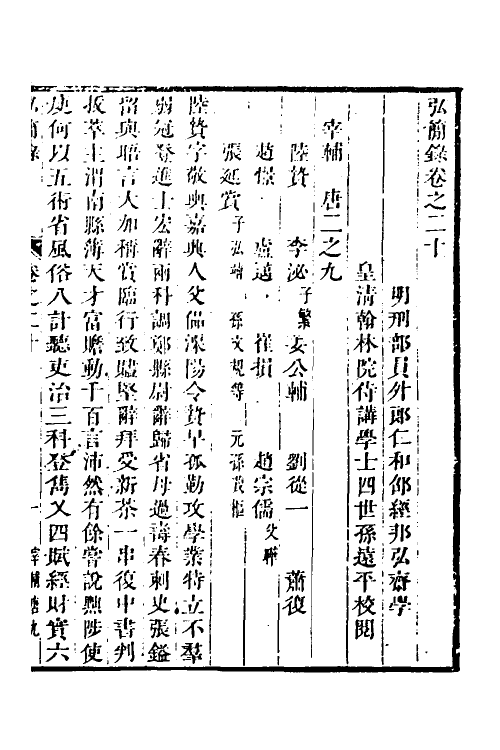 弘簡錄卷之二十
明刑部員外郎仁和邵經邦弘齋學
皇清翰林院侍講學士四世孫遠平校閱
宰輔 唐二之九
陸贄 李泌子繁 姜公輔 劉從一 蕭復
趙憬 盧邁 崔損 趙宗儒 父驊
張延賞 子弘靖 孫文規等 元孫彥
陸贄字敬輿嘉興人父偘溧陽令贄早孤勤攻學業特立不羣
弱冠登進士宏辭兩科調鄭縣尉辭歸省母過壽春刺史張鎰
留與語言大加稱賞臨行致贐堅辭拜受新茶一串復中書判
拔萃主渭南縣簿天才富贍動千百言沛然有餘嘗說黜陟使
庾何以五術省風俗八計聽吏治三科登雋乂四賦經財實六
弘簡錄 卷之二十 一 宰輔